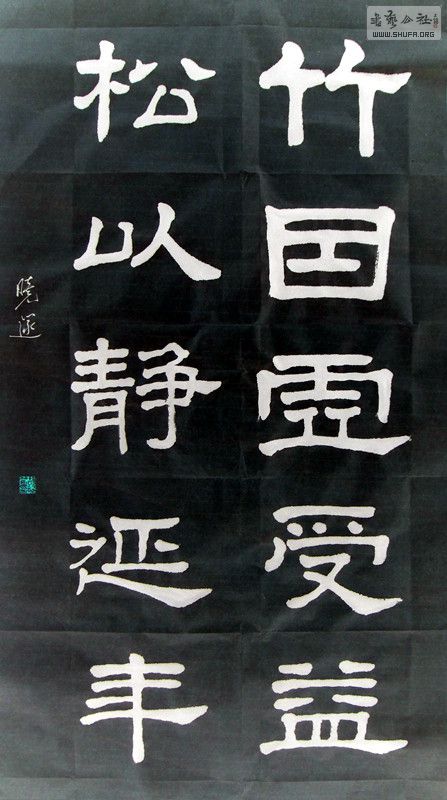 竹因虚受益
松以静延年
書藝公社
WWW.SHUFA.ORG